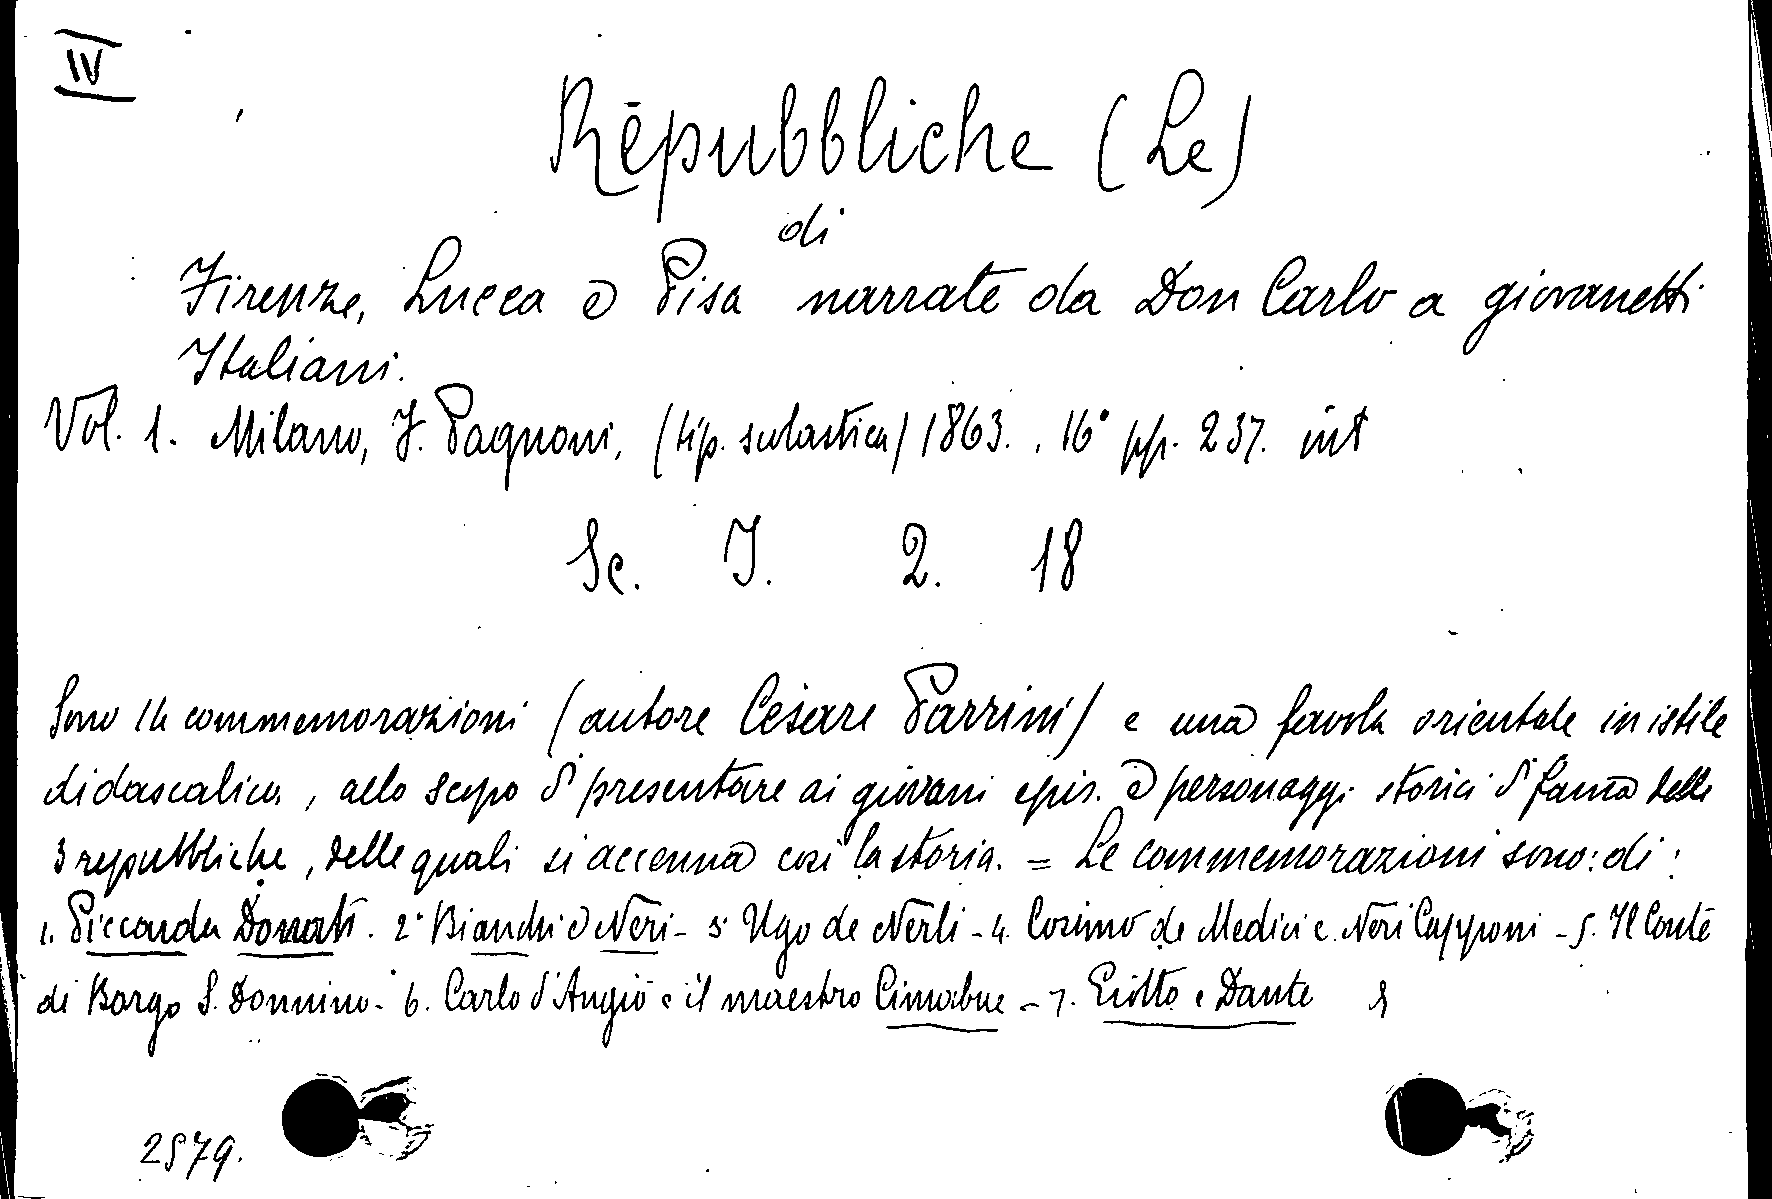 IV
Repubbliche (Le)
di
Firenze, Lucca e Pisa narrate da Don Carlo a giovanetti
Italiani.
Vol. 1. Milano, F. Pagnoni, (tip. scolastica) 1863. , 16° pp. 237. int
Sc. I. 2. 18
Sono 14 commemorazioni (autore Cesare Parrini) e una favola orientale in istile
didascalico, allo scopo di presentare ai giovani epis. e personaggi storici di fama delle
3 repubbliche, delle quali si accenna così la storia. = Le commemorazioni sono: di:
1. Piccarda Donati. 2° Bianchi e Neri - 3° Ugo de Nerli - 4. Cosimo de Medici e Neri Capponi - 5. Il Conte
di Borgo S. Donnino - 6. Carlo d'Angiò e il maestro Cimabue - 7. Giotto e Dante
2579.